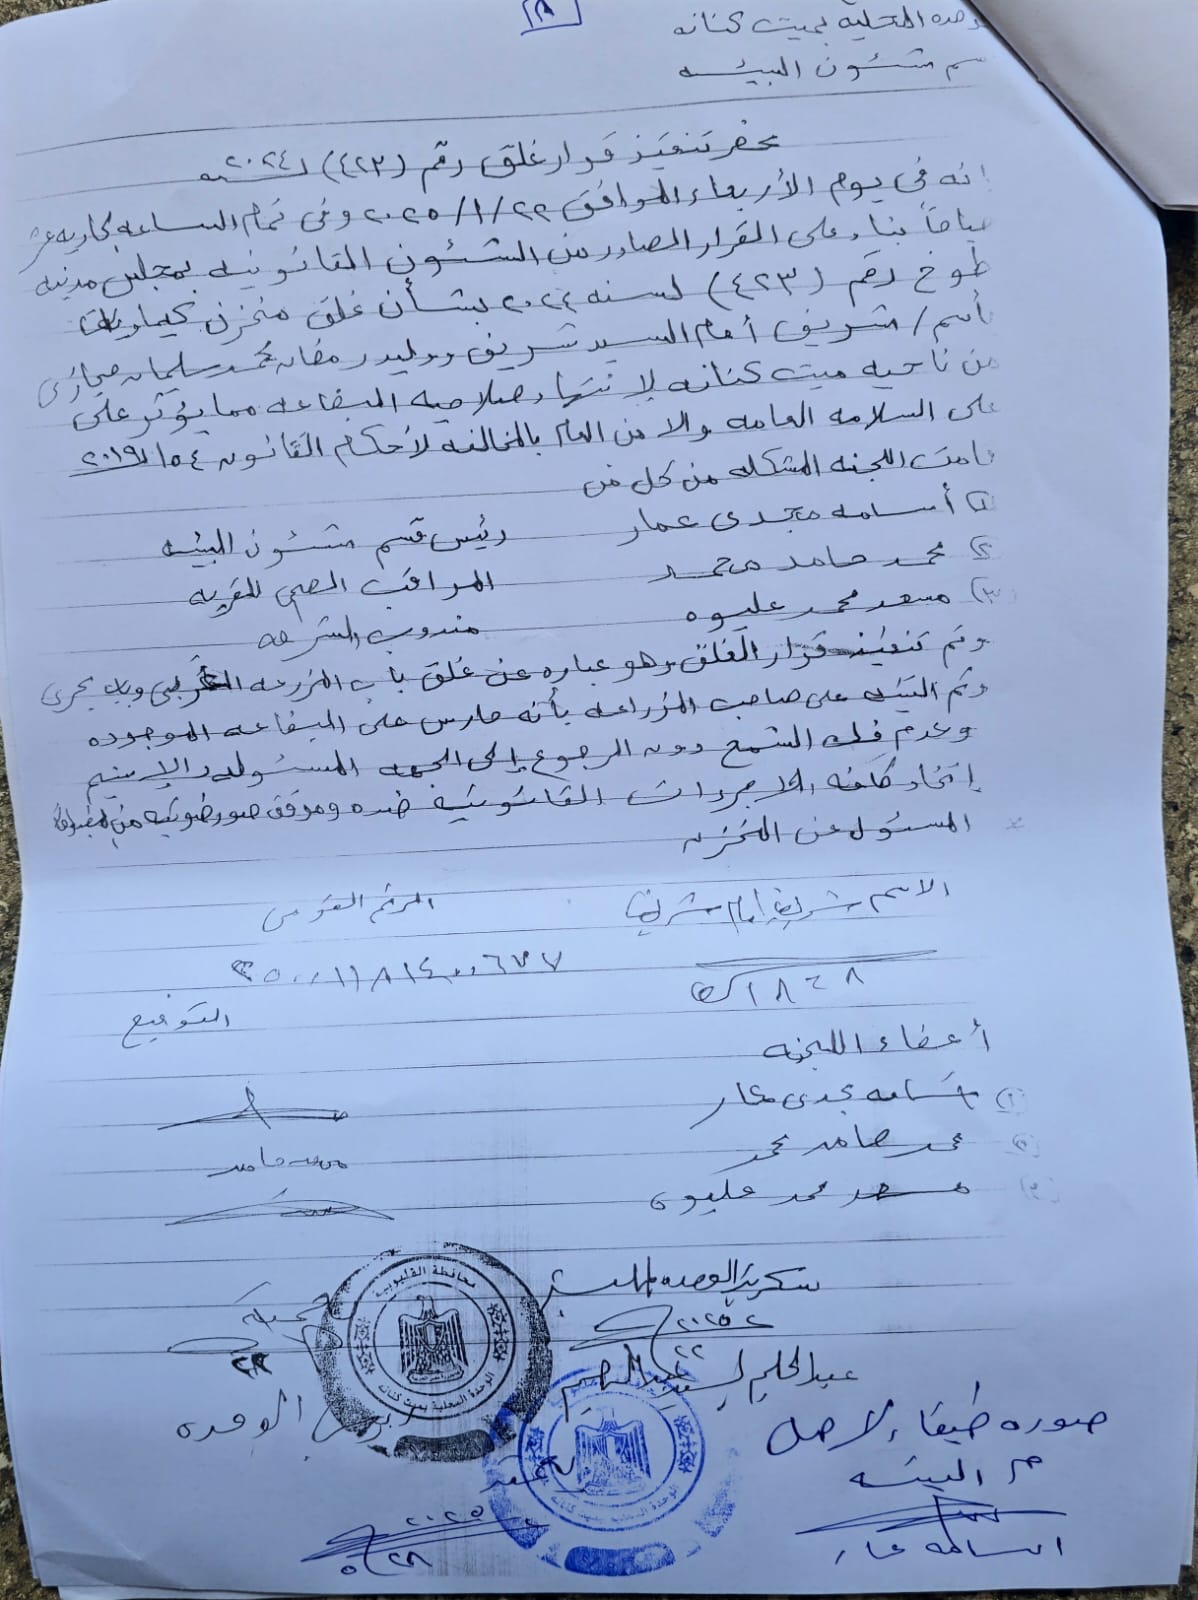 وحده المحلية بميت كنانه
قسم شئون البيئه
محضر تنفيذ قرار غلق رقم (٤٢٣) لسنه ٢٠٢٤
إنه في يوم الأربعاء الموافق ٢٢/١/٢٠٢٥ وفى تمام الساعه الحاديه عشر
صباحاً بناء على القرار الصادر من الشئون القانونيه بمجلس مدينه
طوخ رقم (٤٢٣) لسنه ٢٠٢٤ بشأن غلق مخزن كيماويات
بأسم / شريف أمام السيد شريف ووليد رمضان محمد سليمان حجازى
من ناحيه ميت كنانه لانتهاء صلاحيه البضاعه مما يؤثر على
على السلامه العامه والامن العام بالمخالفه لأحكام القانون ١٥٤ لـ ٢٠١٩
قامت اللجنه المشكله من كل من
١) أسامه مجدى عمار رئيس قسم شئون البيئه
٢) محمد حامد محمد المراقب الصحى للقريه
٣) مسعد محمد عليوه مندوب الشرطه
وتم تنفيذ قرار الغلق وهو عباره عن غلق باب المزرعه الغربى وباب بحرى
وتم التنبيه على صاحب المزراعه بأنه حارس على البضاعه الموجوده
وعدم فك الشمع دون الرجوع إلى الجهه المسئوله والا سيتم
إتخاذ كافه الاجراءات القانونيه ضده ومرفق صور ضوئيه من
المسئول عن المخزن
الاسم شريف إمام شريف الرقم القومى
٣٠٠٠١١٨١٤٠٠٦٧٧
التوقيع
أعضاء اللجنه
١) أسامه مجدى عمار
٢) محمد حامد محمد محمد حامد
٣) مسعد محمد عليوه
محافظة القليوبية
الوحدة المحلية بميت كنانه
سكرتير الوحده المحليه
٢٠٢٥
عبدالحليم السيد
رئيس الوحده
صوره طبقاء لاصل
م البيئه
اسامه عمار
يعتمد
٢٠٢٥
الوحدة المحلية بميت كنانه